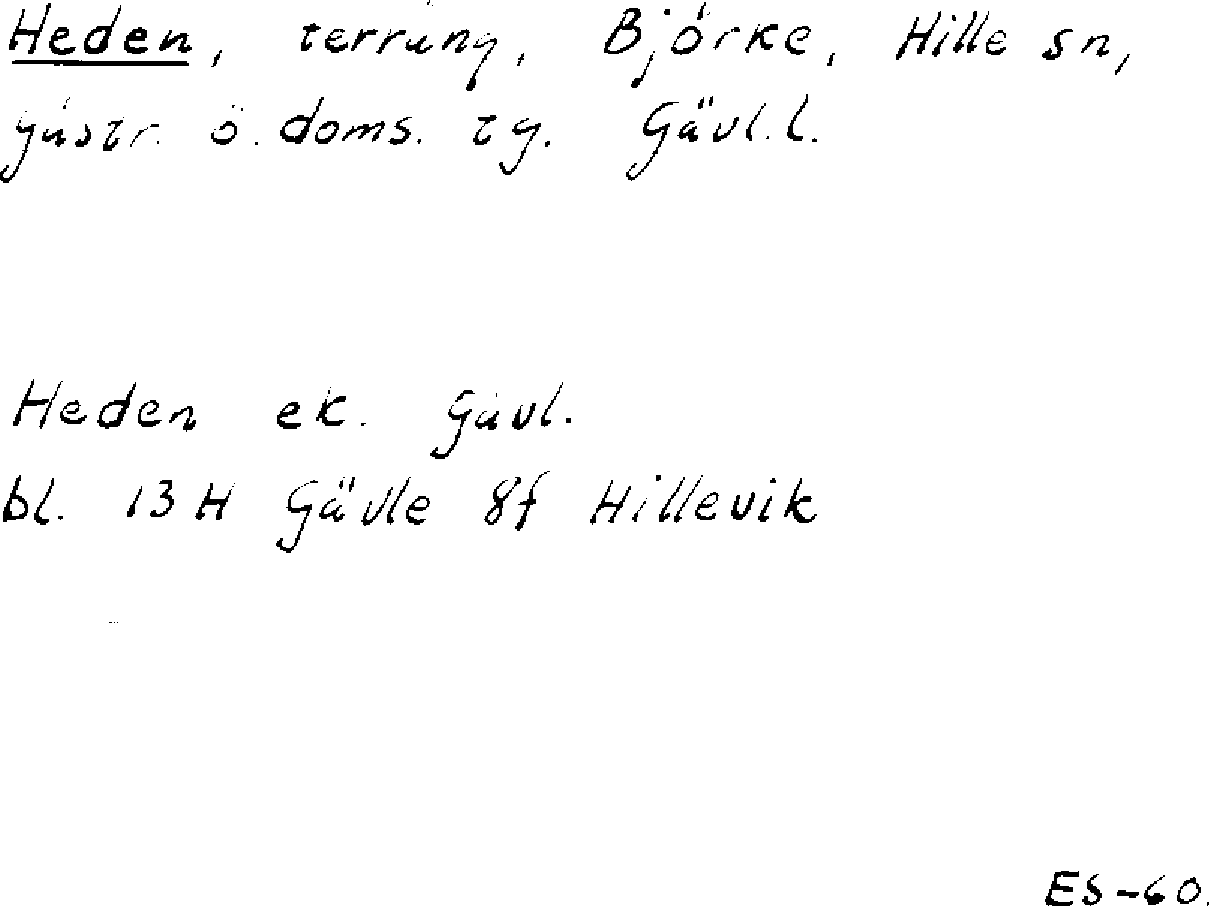 Heden, terräng, Björke, Hille sn,
gästr. ö. doms. tg. Gävl. l.
Heden ek. Gävl.
bl. 13 H Gävle 8f Hillevik
ES-60.